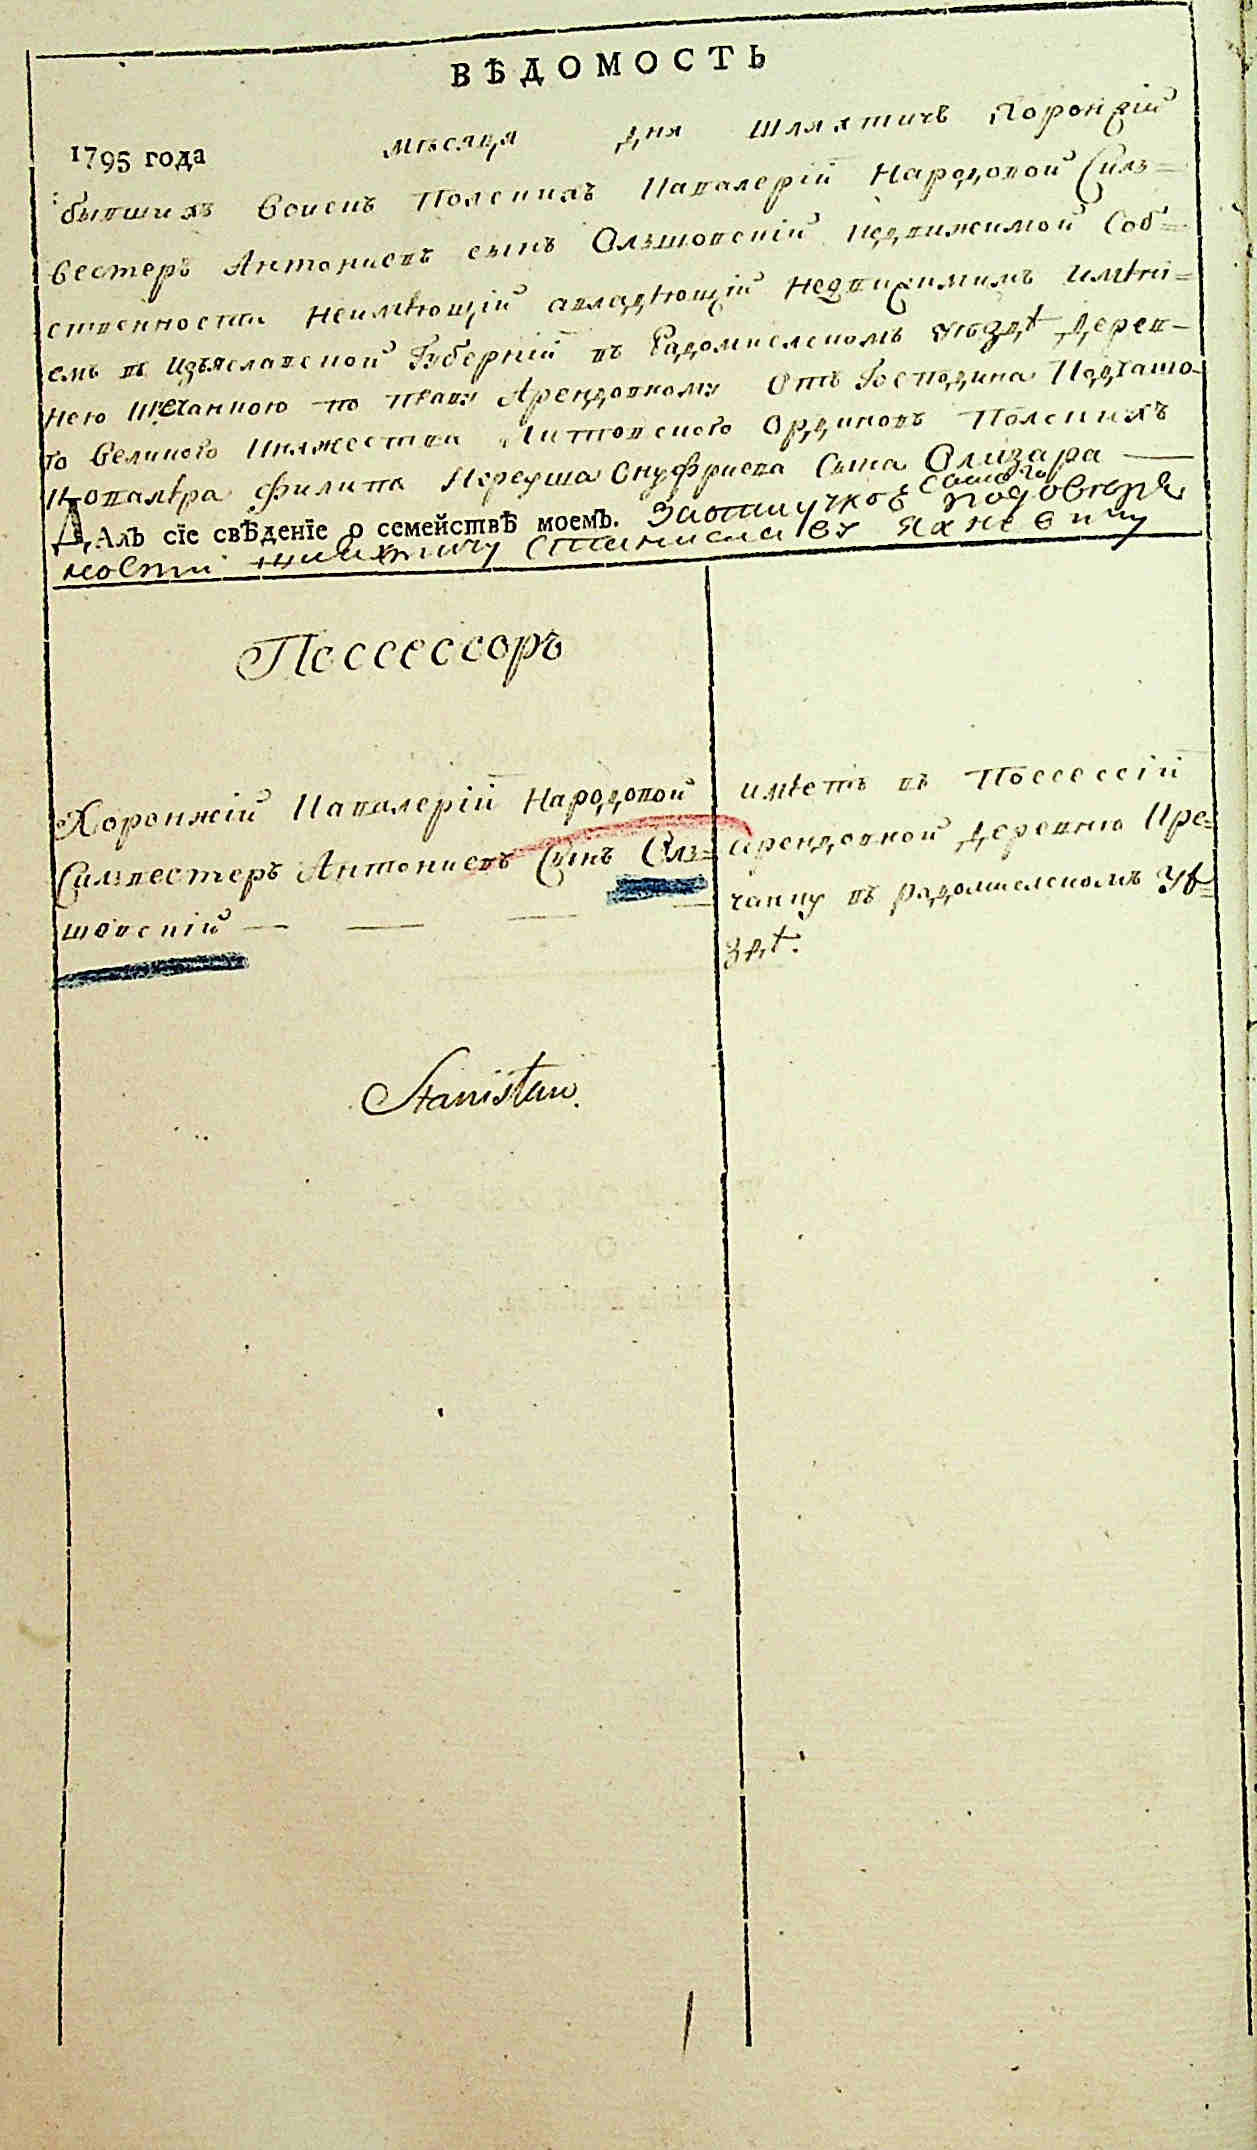 ВѢДОМОСТЬ
1795 года мѣсяца дня Шляхтичъ Хоронжій
бывшихъ Воискъ Полскихъ Кавалеріи Народовой Силь=
вестеръ Антоніевъ сынъ Олшовскій недвижимой Соб=
ственности неимѣющій авладѣющій недвижимимъ имѣні=
емъ въ Изъяславской Губерніи въ Радомиселскомъ уѣздѣ Дерев=
нею по праву Арендовному Отъ Господина Подчашо
го Великого Княжества Литовского Ординовъ Полскихъ
Ковалѣра Филипа Онуфриева Сына Олизара —
ДАлъ сіе свѣденіе о семействѣ моемъ. самого
ности шляхтичу Станиславу Яневичу
Поссессоръ
Хоронжій Кавалеріи Народовой
Силвестеръ Антоніевъ Сынъ Ол=
шовскій — —
имѣетъ въ Поссессіи
Арендовной Деревню Пре=
чанну въ радомиселскомъ Уѣ=
здѣ.
Stanisław.